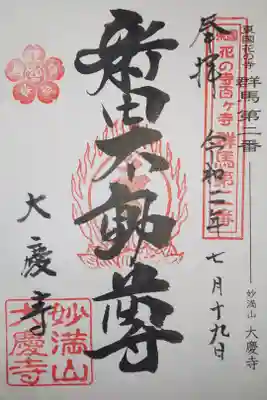 東国花の寺 群馬 第二番
妙満山 大慶寺
東国花の寺百ヶ寺 群馬第二番
奉拝 令和二年 七月十九日
新田不動尊
大慶寺
妙満山
大慶寺